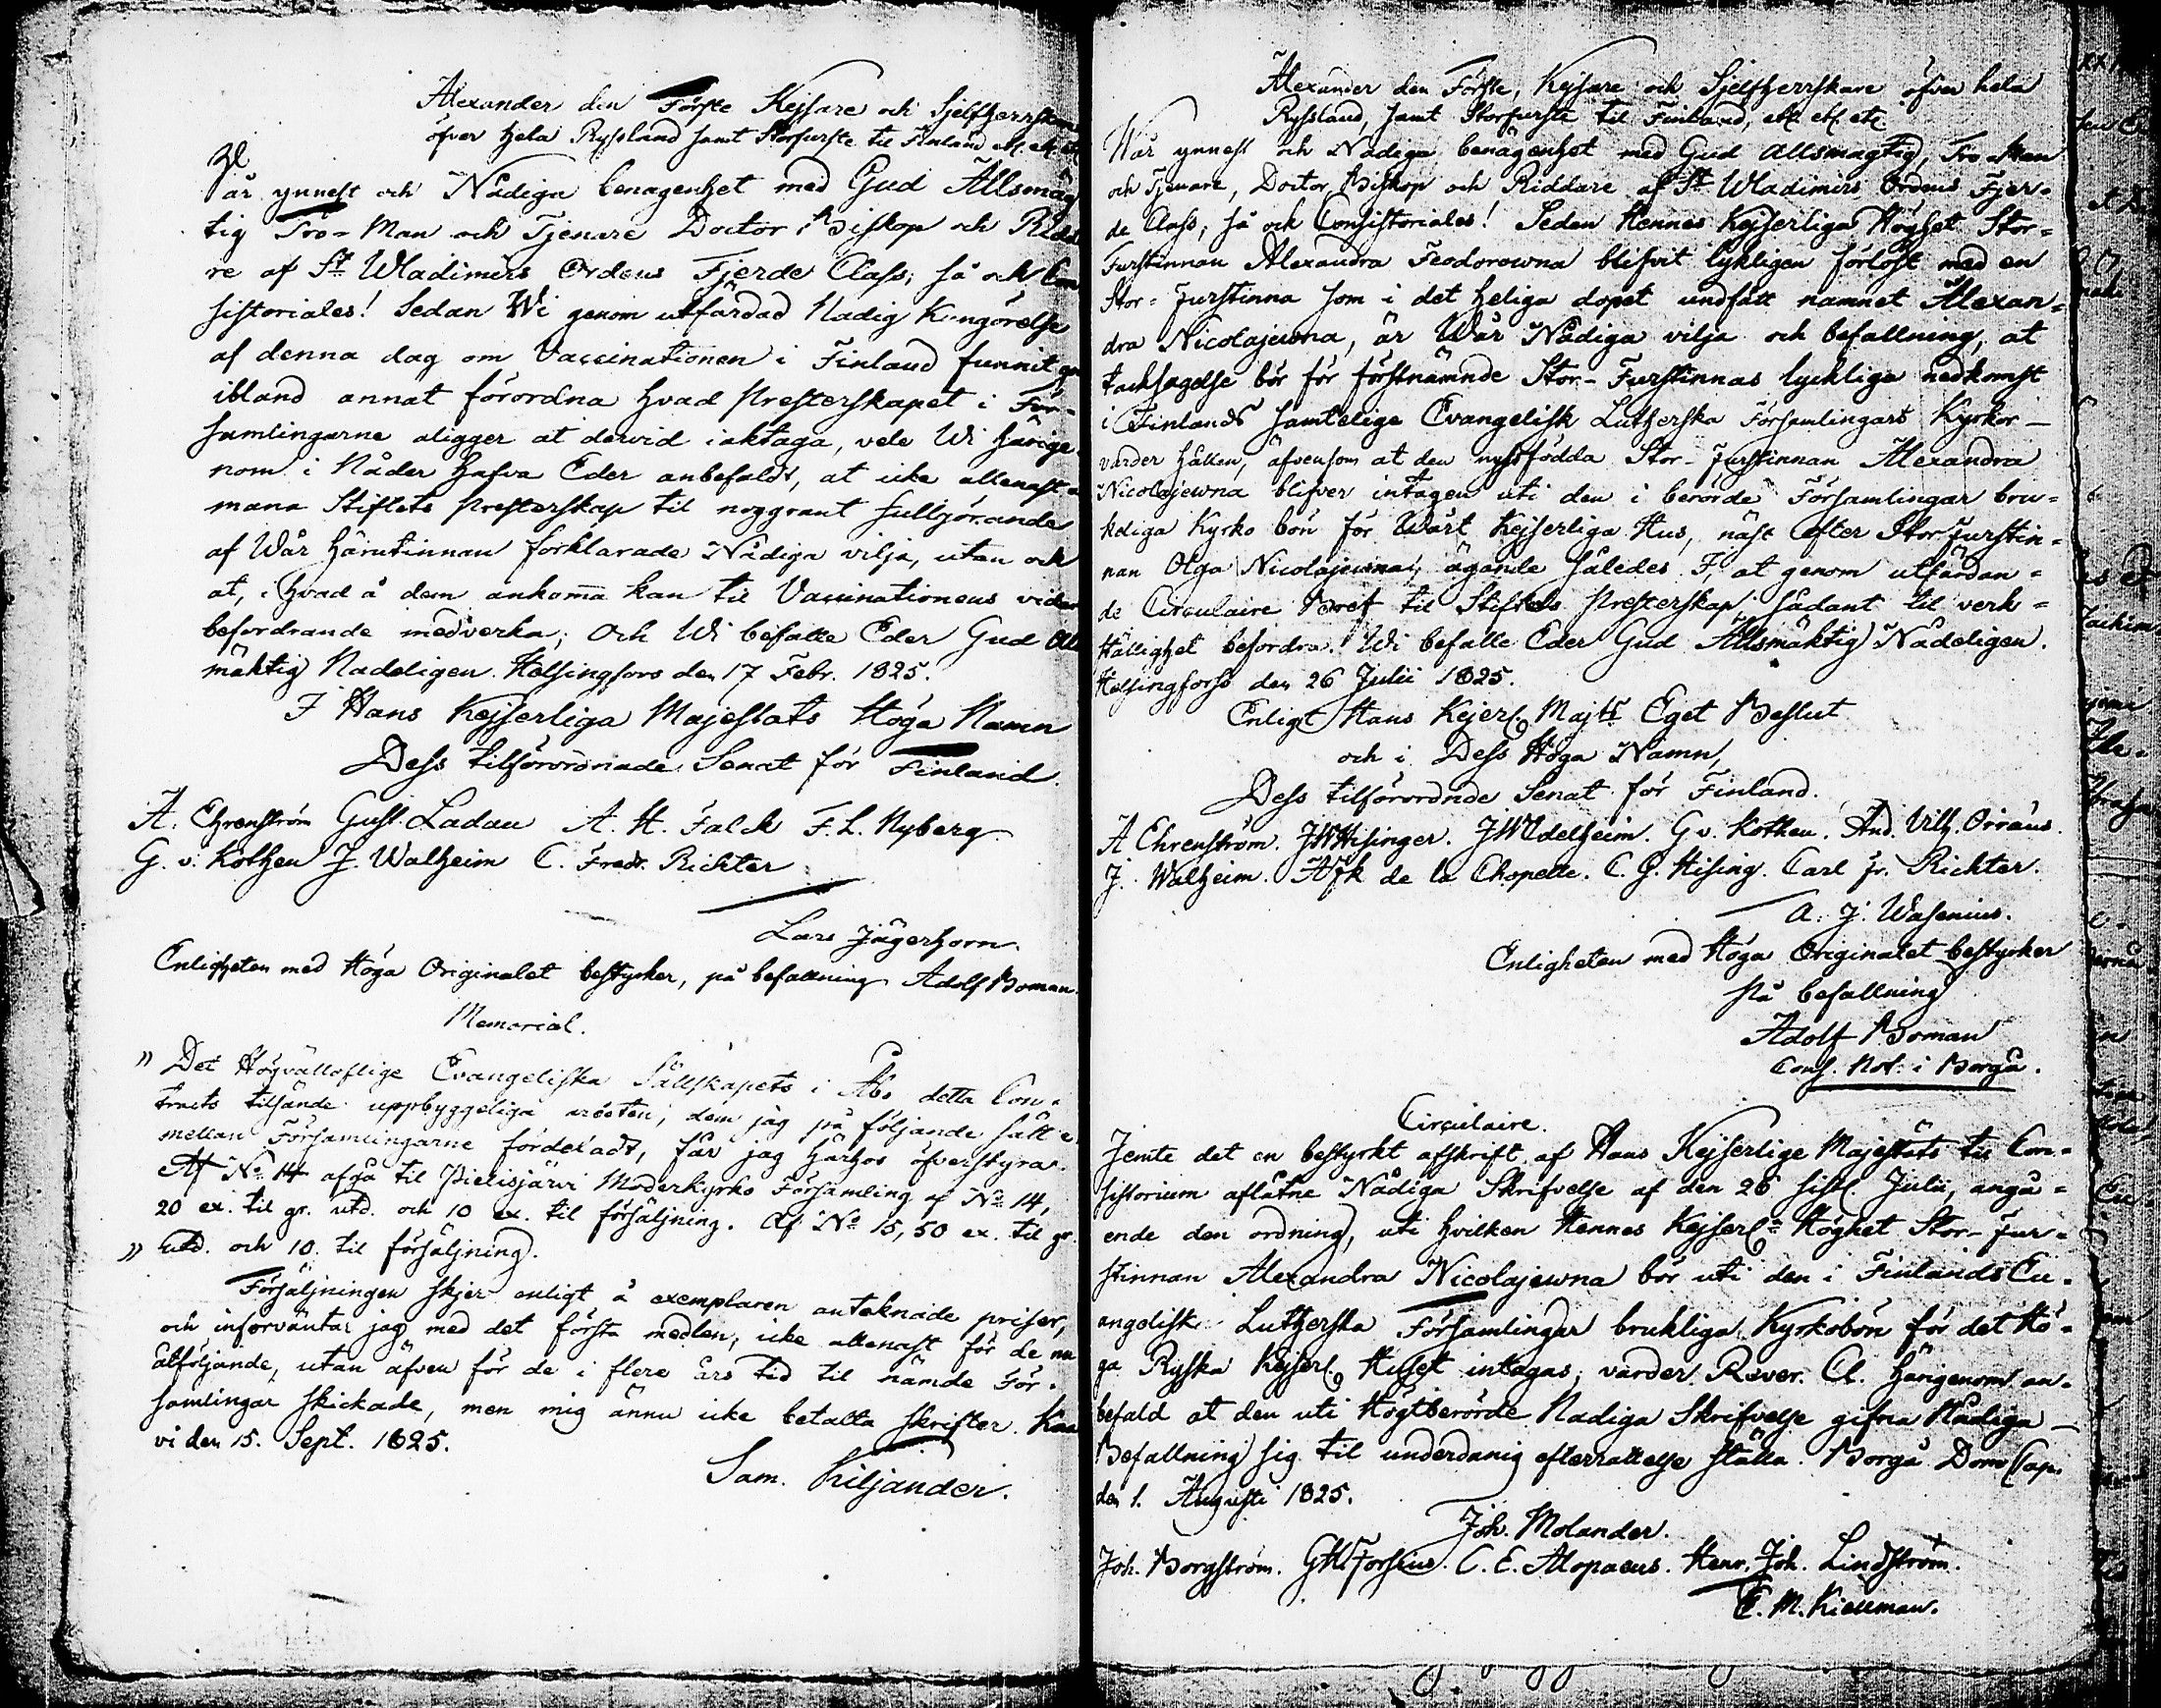 Alexander den Förste Kejsare och Sjelfherrskare
öfver hela Ryssland samt Storfurste til Finland etc. etc. etc
Wår ynnest och Nådiga benägenhet med Gud Allsmäg
tig Tro-Man och Tjenare Doctor, Biskop och Ridda
re af St Wladimirs Ordens Fjerde Class, så ock Con
sistoriales! Sedan Wi genom utfärdad Nådig Kungörelse
af denna dag om Vaccinationen i Finland funnit
ibland annat förordna hvad Presterskapet i För-
samlingarne åligger at dervid iakttaga, vele Wi härige
nom i Nåder hafva Eder anbefaldt, at icke allenast
mana Stiftets Presterskap til noggrant fullgörande
af Wår härutinnan förklarade Nådiga vilja, utan och
at, i hvad å dem ankoma kan til Vaccinationens vidare
befordrande medverka; Och Wi befalle Eder Gud All
mäktig Nådeligen. Helsingfors den 17 Febr. 1825.
I Hans Kejserliga Majestäts Höga Namn
Dess tilförordnade Senat för Finland.
A. Ehrenström Gust. Ladau A. H. Falck F. L. Nyberg
G. v. Kothen J. Walheim C. Fredr. Richter
Lars Jägerhorn.
Enligheten med Höga Originalet bestyrker, på befallning Adolf Boman.
Memorial.
" Det Högvälloflige Evangeliska Sällskapets i Åbo detta Con-
tracts tilsände uppbyggeliga arbeten, dem jag på följande sätt
mellan Församlingarne fördeladt, får jag härhos öfverstyra.
Af No 14 afgå til Pielisjärvi Moderkyrko Församling af No 14,
20 ex. til gr. utd. och 10 ex. til försäljning. Af No 15, 50 ex. til gr.
" utd. och 10. til försäljning.
Försäljningen skjer enligt å exemplaren anteknade priser,
och inforväntar jag med det första medlen, icke allenast för de nu
åtföljande, utan äfven för de i flere års tid til nämde För-
samlingar skickade, men mig ännu icke betalta skrifter. Kaa
vi den 15. Sept. 1825.
Sam. Kiljander.
Alexander den Förste, Kejsare och Sjelfherrskare öfver hela
Ryssland, samt Storfurste til Finland, etc. etc. etc
Wår ynnest och Nådiga benägenhet med Gud allsmagtig, Tro-Man
och Tjenare, Doctor, Biskop och Riddare af St Wladimirs Ordens Fjer-
de Class, så ock Consistoriales! Sedan Hennes Kejserliga Höghet Stor-
Furstinnan Alexandra Feodorowna blifvit lykligen förlöst med en
Stor-Furstinna som i det heliga dopet undfått namnet Alexan-
dra Nicolajewna, är Wår Nådiga vilja och befallning, at
tacksägelse bör för förstnämnde Stor-Furstinnas lyckliga nedkomst
i Finlands samtelige Evangelisk Lutherska Församlingars Kyrkor -
varder hållen, äfvensom at den nyssfödda Stor-Furstinnan Alexandra
Nicolajewna blifver intagen uti den i berörde Församlingar bru-
kliga Kyrko bön för Wårt Kejserliga Hus, näst efter Storfurstin-
nan Olga Nicolajewna; ägande således I, at genom utfärdan-
de Circulaire Bref til Stiftets Presterskap, sådant til verk-
ställighet befordra. Wi befalle Eder Gud Allsmäktig Nådeligen.
Helsingfors den 26 Julii 1825.
Enligt Hans Kejserl. Majts Eget Beslut
och i Dess Höga Namn,
Dess tilförordnde Senat för Finland.
A Ehrenström. JWHisinger. JWEdelheim. G v. Kothen. And. Vilh. Orræus.
J. Walheim. de la Chapelle. C. G. Hising. Carl Fr. Richter.
A. J. Wasenius.
Enligheten med Höga Originalet bestyrker
På befallning
Adolf Boman
Cons. Not. i Borgå.
Circulaire.
Jemte det en bestyrkt afskrift af Hans Kejserlige Majestäts til Con-
sistorium aflåtne Nådiga Skrifvelse af den 26 sistl. Julii, angå-
ende den ordning, uti hvilken Hennes Kejserl. Höghet Stor-Fur-
stinnan Alexandra Nicolajewna bör uti den i Finlands Ev-
angelisk Lutherska Församlingar brukliga Kyrkobön för det Hö-
ga Ryska Kejserl. Huset intagas, varder Rever. Cl. härigenom an-
befald at den uti Högtberörde Nådiga Skrifvelse gifna Nådiga -
Befallning sig til underdånig efterrättelse ställa. Borgå Dom Cap.
den 1. Augusti 1825.
Joh. Molander.
Joh. Borgström. Forsius. C. E. Alopaeus. Henr. Joh. Lindström.
E. M. Kiellman.